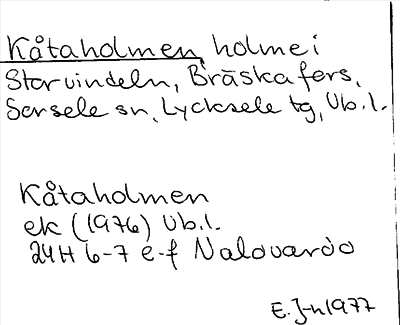 Kåtaholmen, holme i
Storvindeln, Bräskafers,
Sorsele sn, Lycksele tg, Vb.l.
Kåtaholmen
ek (1976) Vb.l.
24H 6-7 e-f Nalovardo
E. J-n 1977